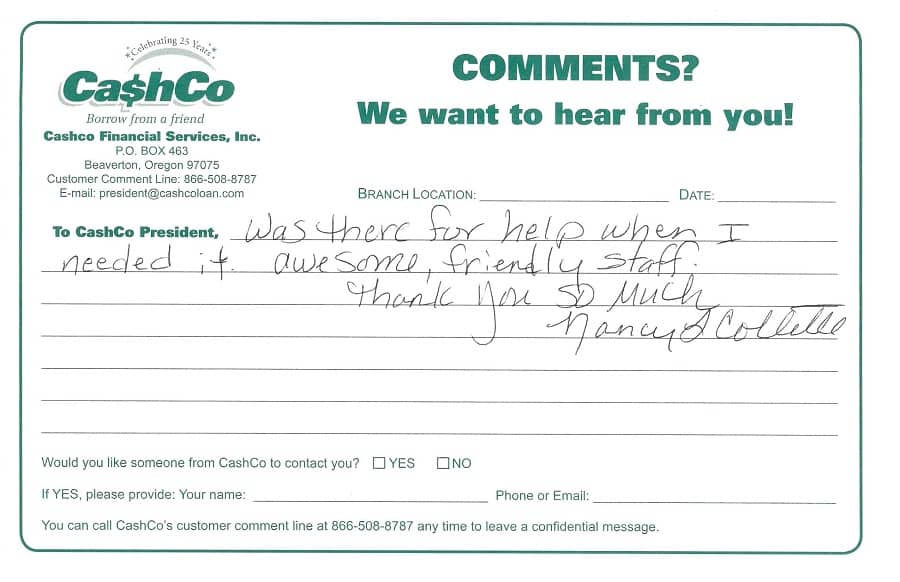 *Celebrating 25 Years*
Ca$hCo
Borrow from a friend
Cashco Financial Services, Inc.
P.O. BOX 463
Beaverton, Oregon 97075
Customer Comment Line: 866-508-8787
E-mail: president@cashcoloan.com
COMMENTS?
We want to hear from you!
BRANCH LOCATION: DATE:
To CashCo President, Was there for help when I
needed it. awesome, friendly staff.
Thank You so Much
Nancy L Collette
Would you like someone from CashCo to contact you? ☐ YES ☐ NO
If YES, please provide: Your name: Phone or Email:
You can call CashCo's customer comment line at 866-508-8787 any time to leave a confidential message.